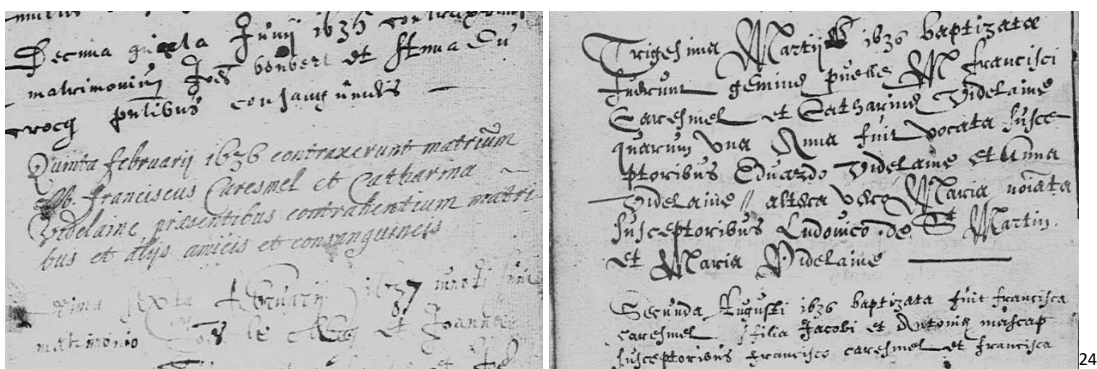 Decima quarta Junij 1635 contraxerunt
matrimonium Joes bonbert et Anna Du
crocq pntibus consanguineis
Quinta februarij 1636 contraxerunt matrium
M. Franciscus Caresmel et Catharina
Videlaine, præsentibus contrahentium matri-
bus et alijs amicis et consanguineis
sexta februarij 1637 iuncti sunt
matrimonio Joes le et Joanna
Trigesima Martij 1636 baptizatæ
fuerunt geminæ puellæ M francisci
Caresmel et Catharinæ Videlaine
quarum una Anna fuit vocata susce-
ptoribus Eduardo Videlaine et Anna
Videlaine // altera vero Maria noiata
susceptoribus Ludovico de St Martin.
et Maria Videlaine
Secunda Augusti 1636 baptizata fuit francisca
caresmel filia Jacobi et Antoniæ mascap
susceptoribus francisco caresmel et francisca
24